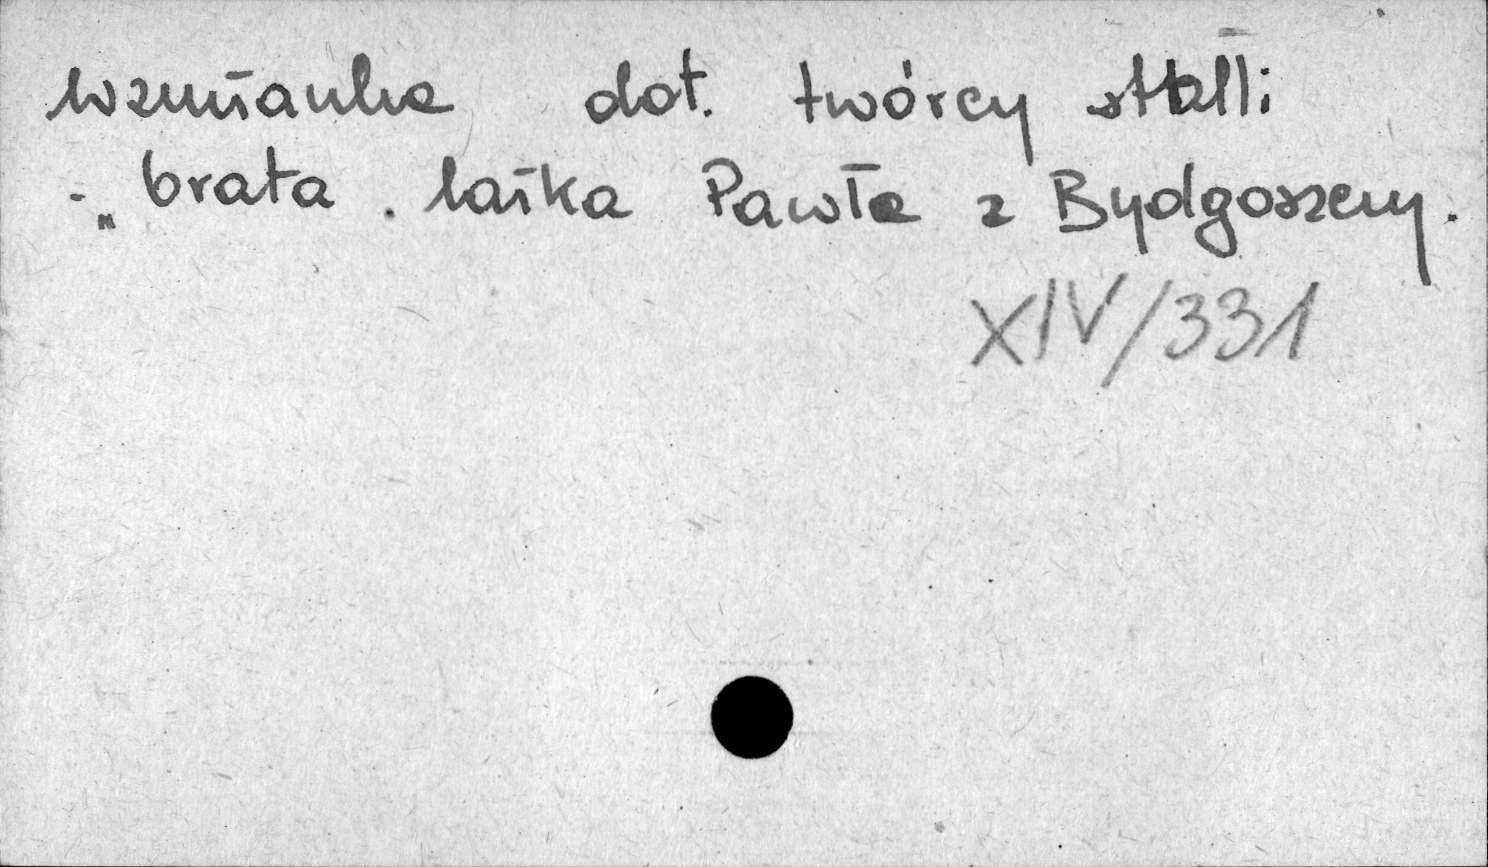 wzmianka dot. twórcy stalli
- „brata laika Pawła z Bydgoszczy.
XIV/331